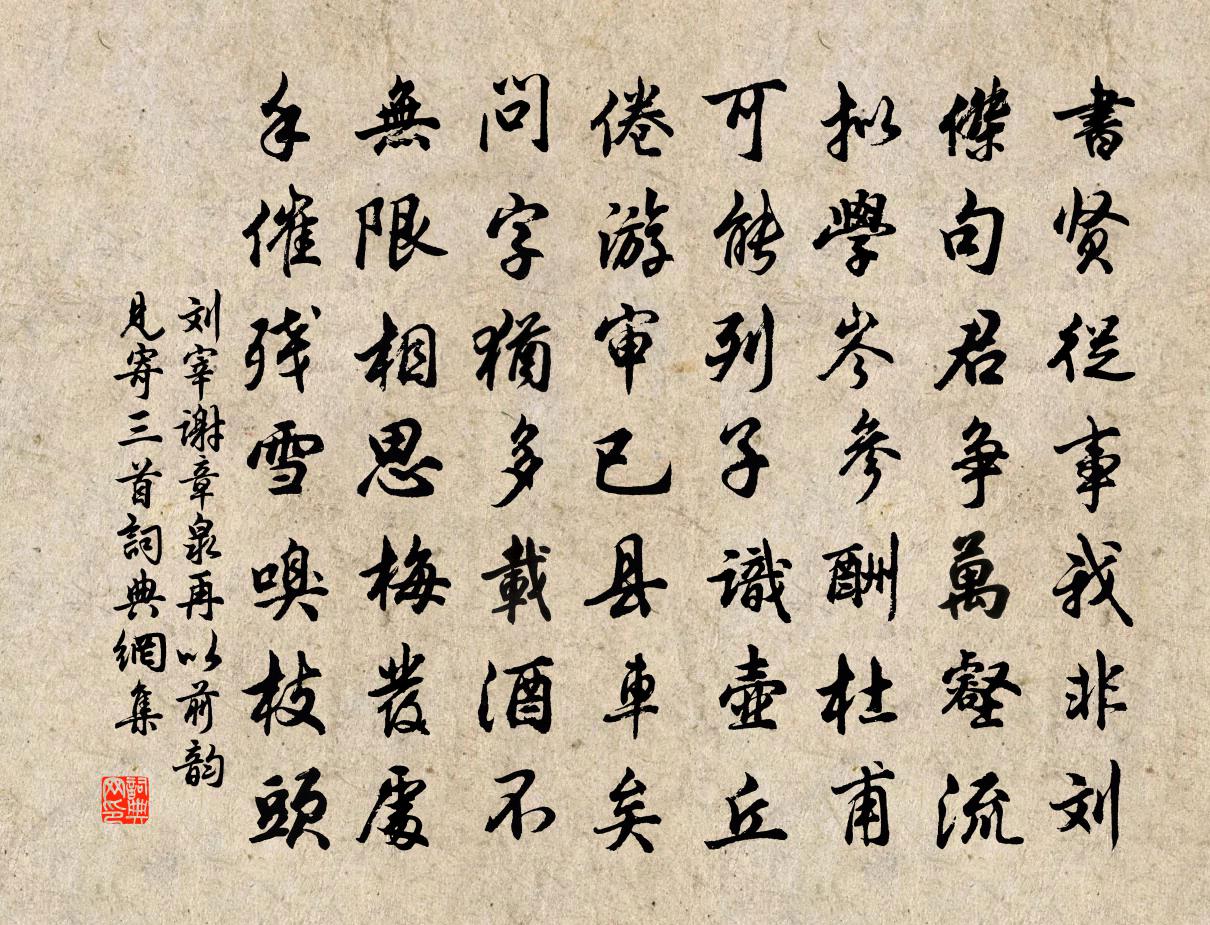 書贤從事我非刘
傑句君争萬壑流
拟學岑參酬杜甫
可能列子識壺丘
倦游审已县車矣
问字猶多載酒不
無限相思梅發處
手催残雪嗅枝頭
刘宰谢章泉再以前韵
见寄三首詞典網集
詞典
网印